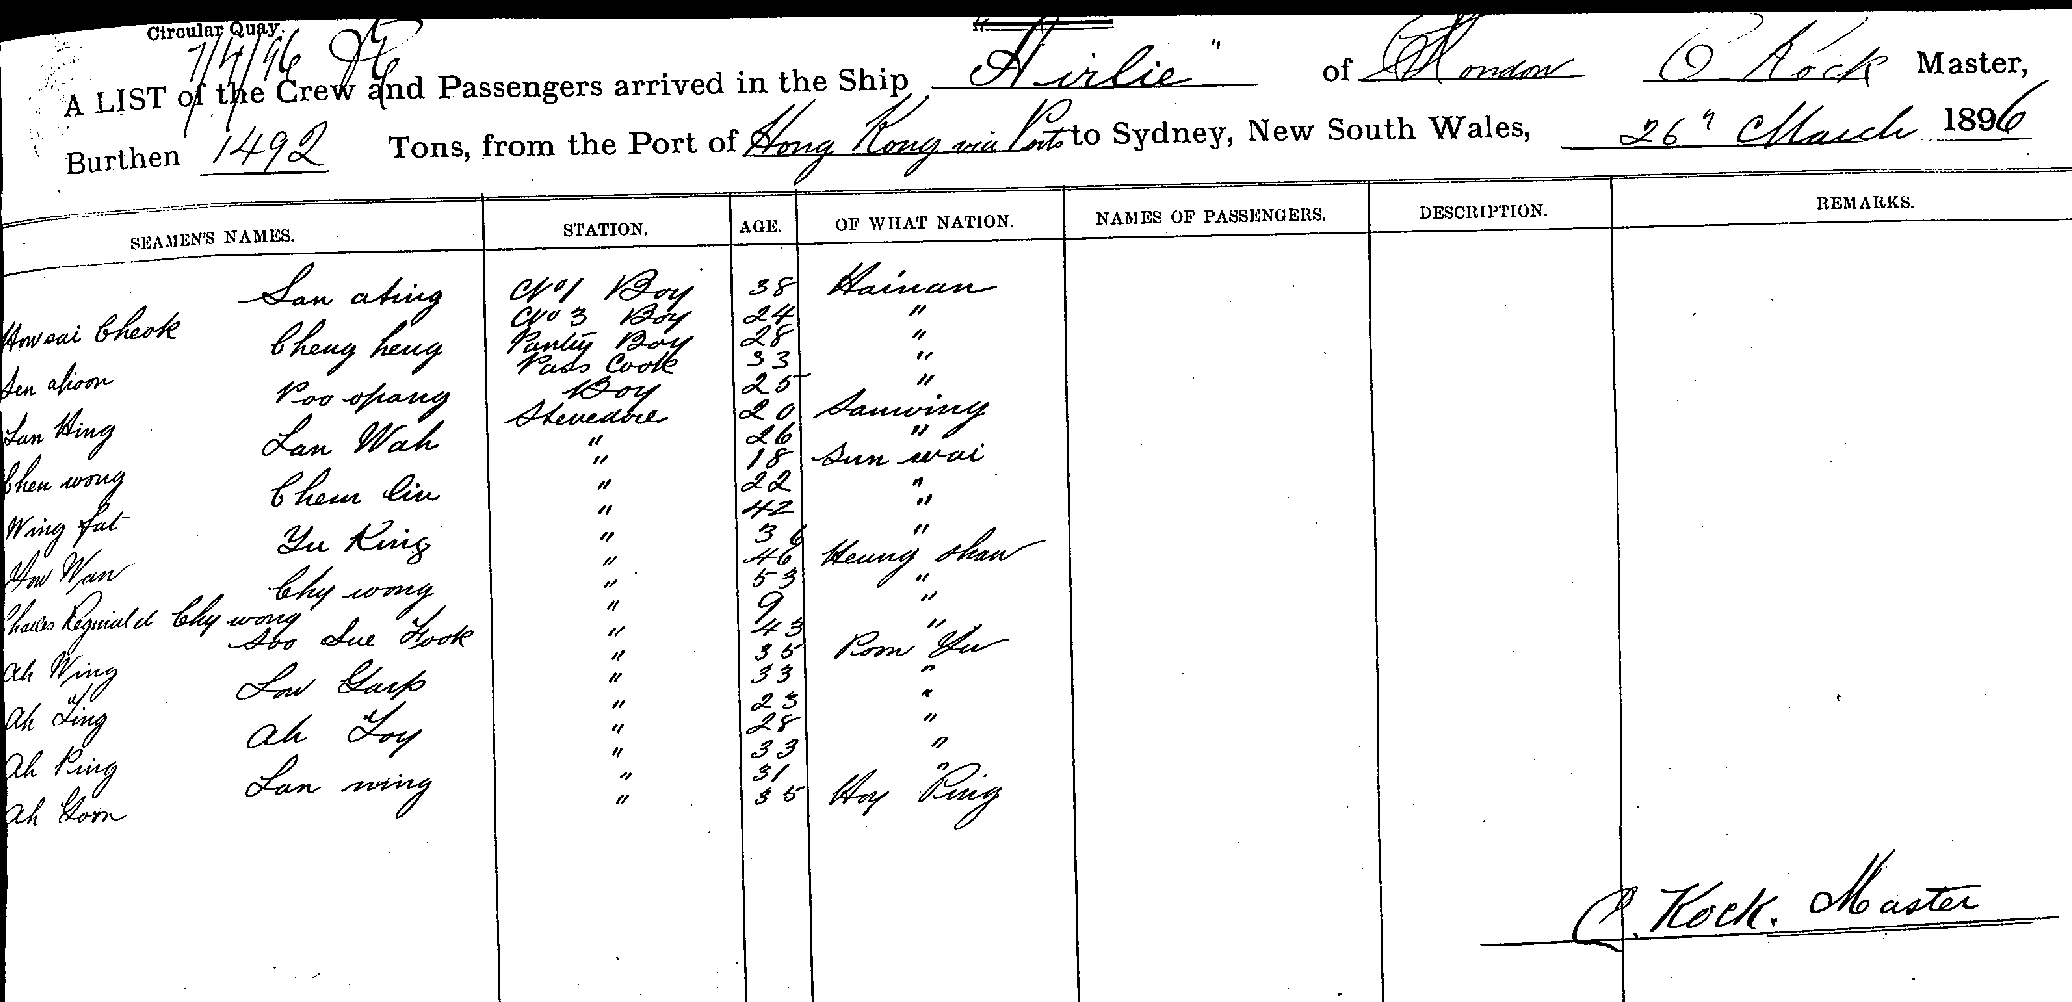 Circular Quay.
7/4/96
A LIST of the Crew and Passengers arrived in the Ship "Airlie" of London C Kock Master,
Burthen 1492 Tons, from the Port of Hong Kong via Ports to Sydney, New South Wales, 26" March 1896
SEAMEN'S NAMES. STATION. AGE. OF WHAT NATION. NAMES OF PASSENGERS. DESCRIPTION. REMARKS.
San ating No 1 Boy 38 Hainan
How sai Cheok No 3 Boy 24 "
Cheng heng Pantry Boy 28 "
Sen ahoon Pass Cook 33 "
Poo opang Boy 25 "
Lan Hing Stevedore 20 Sanwing
Lan Wah " 26 "
Chen wong " 18 Sun wai
Chem Liu " 22 "
Wing fat " 42 "
Yu King " 36 "
How Wan " 46 Heung shan
Chy wong " 53 "
Charles Reginald Chy wong " 9 "
Soo Sue Fook " 43 "
Ah Wing " 35 Pom Yu
Low Garp " 33 "
Ah Ting " 23 "
Ah Foy " 28 "
Ah Ping " 33 "
Lan wing " 31 "
Ah Goon " 35 Hoy Ping
C. Kock. Master